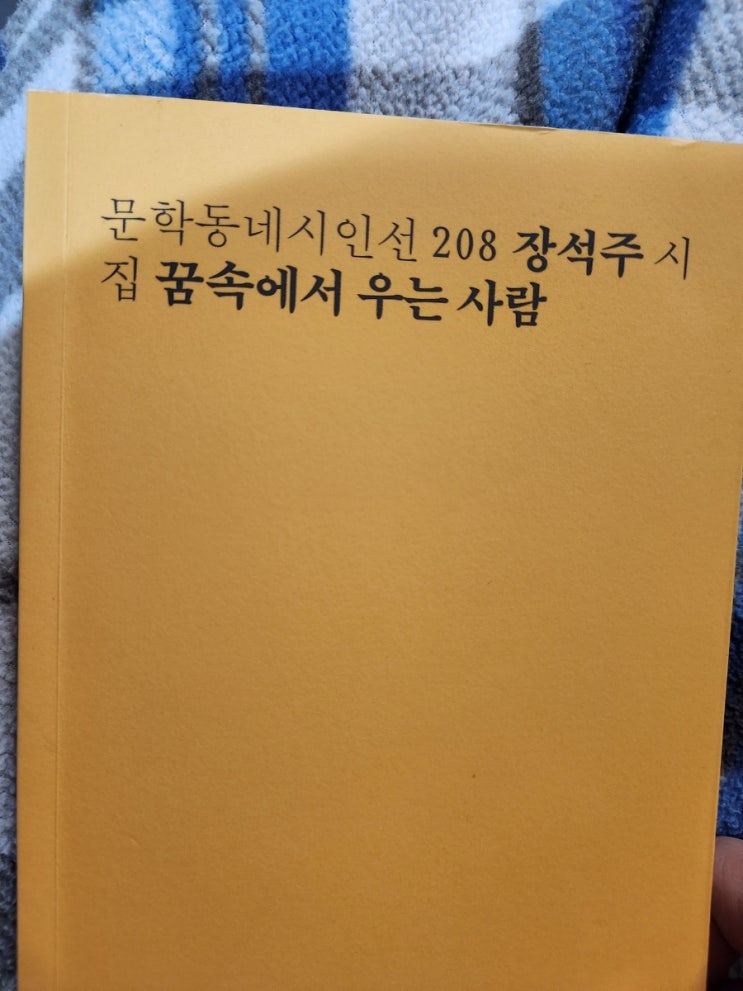 문학동네시인선 208 장석주 시
집 꿈속에서 우는 사람